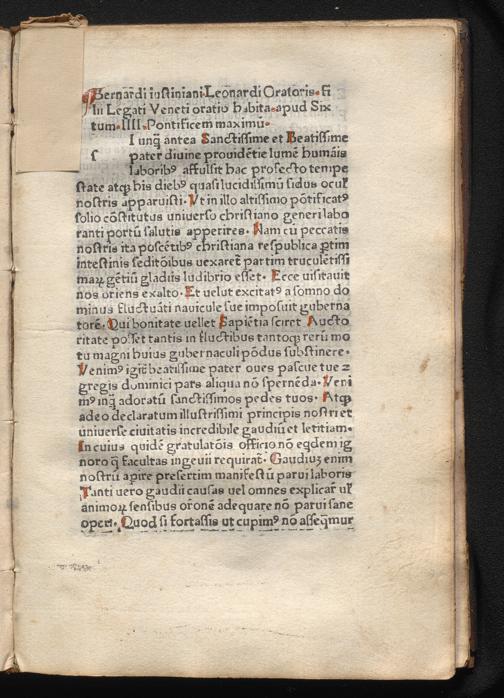 Bernardi iustiniani Leonardi Oratoris. fi
lii Legati Veneti oratio habita. apud Six
tum. IIII. Pontificem maximū.
I unq̄ antea Sanctissime et Beatissime
ſ pater diuine prouidētie lumē humāis
laborib⁹ affulsit hac profecto tempe
state atq̢ his dieb⁹ quasi lucidissimū sidus ocul'
nostris apparuisti. Vt in illo altissimo pōtificat⁹
solio cōstitutus uniuerso christiano generi labo
ranti portū salutis apperires. Nam cū peccatis
nostris ita poscētib⁹ christiana respublica ꝑtim
intestinis seditōibus uexaret̄ partim truculētissi
maꝝ gētiū gladiis ludibrio esset. Ecce uisitauit
nos oriens exalto. Et uelut excitat⁹ a somno do
minus fluctuāti nauicule sue imposuit guberna
torē. Qui bonitate uellet Sapiētia sciret Aucto
ritate posset tantis in fluctibus tantoq̢ reri mo
tu magni huius gubernaculi pōdus substinere.
Venim⁹ igit̄ beatissime pater oues pascue tue ⁊
gregis dominici pars aliqua nō spernēda. Veni
m⁹ inq̄ adoratū sanctissimos pedes tuos. Atq̢
adeo declaratum illustrissimi principis nostri et
uniuerse ciuitatis incredibile gaudiū et letitiam.
In cuius quidē gratulatōis officio nō eqdem ig
noro q̄ facultas ingenii requirat. Gaudiuꝫ enim
nostrū apire presertim manifestū parui laboris
Tanti uero gaudii causas uel omnes explicar ul'
animoꝝ sensibus orōne adequare nō parui sane
operi. Quod si fortassis ut cupim⁹ nō asseq̄mur